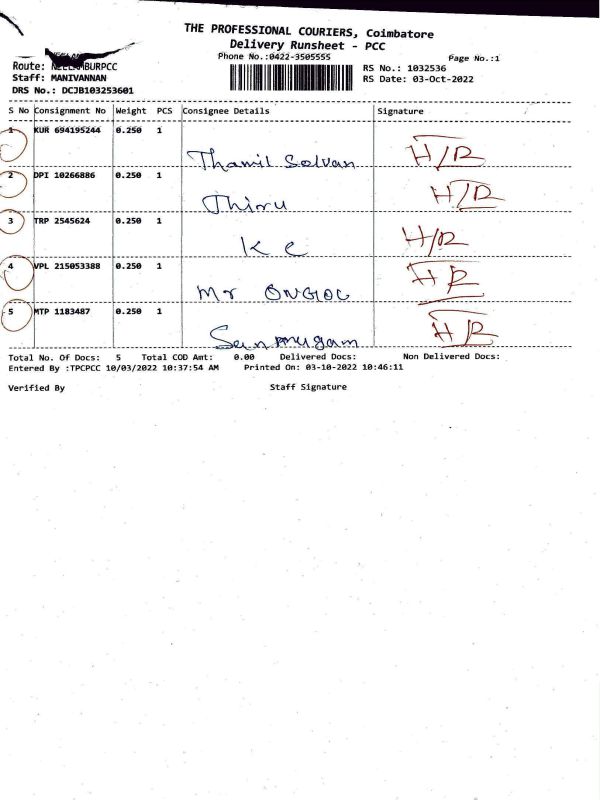 THE PROFESSIONAL COURIERS, Coimbatore
Delivery Runsheet - PCC
Phone No.:0422-3505555
Page No.:1
Route: NEELAMBURPCC
RS No.: 1032536
Staff: MANIVANNAN
RS Date: 03-Oct-2022
DRS No.: DCJB103253601
S No Consignment No Weight PCS Consignee Details Signature
1 KUR 694195244 0.250 1
Thamil Selvan H/R
2 DPI 10266886 0.250 1
Thiru H/R
3 TRP 2545624 0.250 1
K C H/R
4 VPL 215053388 0.250 1
Mr H R
5 MTP 1183487 0.250 1
H R
Total No. Of Docs: 5 Total COD Amt: 0.00 Delivered Docs: Non Delivered Docs:
Entered By :TPCPCC 10/03/2022 10:37:54 AM Printed On: 03-10-2022 10:46:11
Verified By Staff Signature